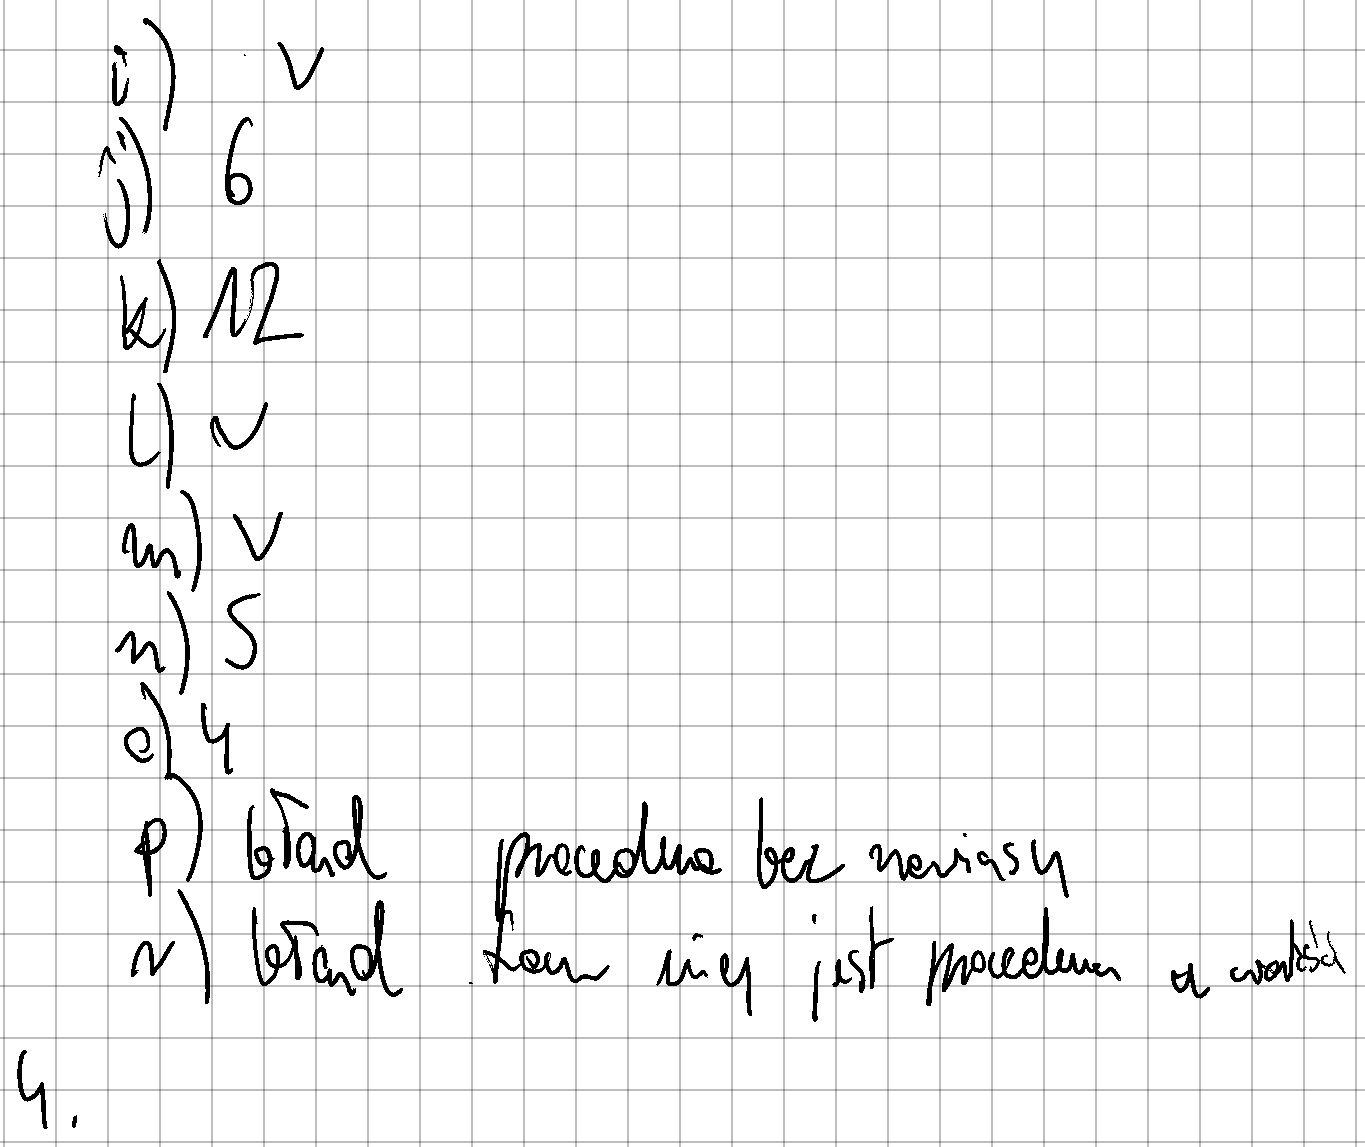 i) v
j) 6
k) 12
l) v
m) v
n) 5
o) 4
p) błąd procedura bez nawiasu
r) błąd tam jest procedura a wartość
4.